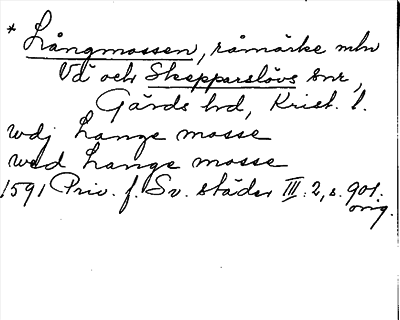 * Långmossen, råmärke mln
Vä och Skepparslövs snr,
Gärds hd, Krist. l.
widj Lange mosse
wed Lange mosse
1591 Priv. f. Sv. städer III: 2, s. 901.
orig.